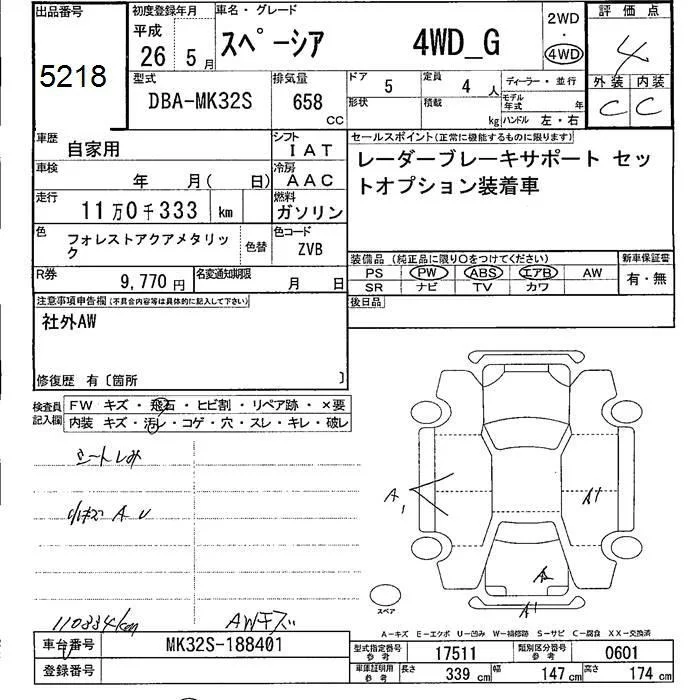 出品番号 初度登録年月 車名・グレード 2WD 評価点
5218 平成 26 5月 スペーシア 4WD_G ・ 4WD 4
型式 排気量 ドア 5 定員 4人 ディーラー・並行 外装 内装
DBA-MK32S 658 CC 形状 積載 kg モデル年式 年 C C
ハンドル 左・右
車歴 自家用 シフト IAT セールスポイント(正常に機能するものに限ります)
車検 年 月( 日) 冷房 AAC レーダーブレーキサポート セッ
トオプション装着車
走行 11万0千333 km 燃料 ガソリン
色 フォレストアクアメタリッ
ク 色替 色コード ZVB
装備品(純正品に限り○をつけてください) 新車保証書
PS PW ABS エアB AW 有・無
SR ナビ TV カワ
R券 9,770円 名変通知期限 月 日
後日品
注意事項申告欄(不具合内容等は具体的に記入して下さい)
社外AW
修復歴 有〔箇所 〕
検査員記入欄 FW キズ・飛石・ヒビ割・リペア跡・×要
内装 キズ・汚レ・コゲ・穴・スレ・キレ・破レ
シートしみ
小キズ A U
A1
A1
A
A1
スペア
110334km AWキズ
A-キズ E-エクボ U-凹み W-補修跡 S-サビ C-腐食 XX-交換済
車台番号 MK32S-188401
登録番号
型式指定番号 参考 17511 類別区分番号 参考 0601
車庫証明用 参考 長さ 339 cm 幅 147 cm 高さ 174 cm